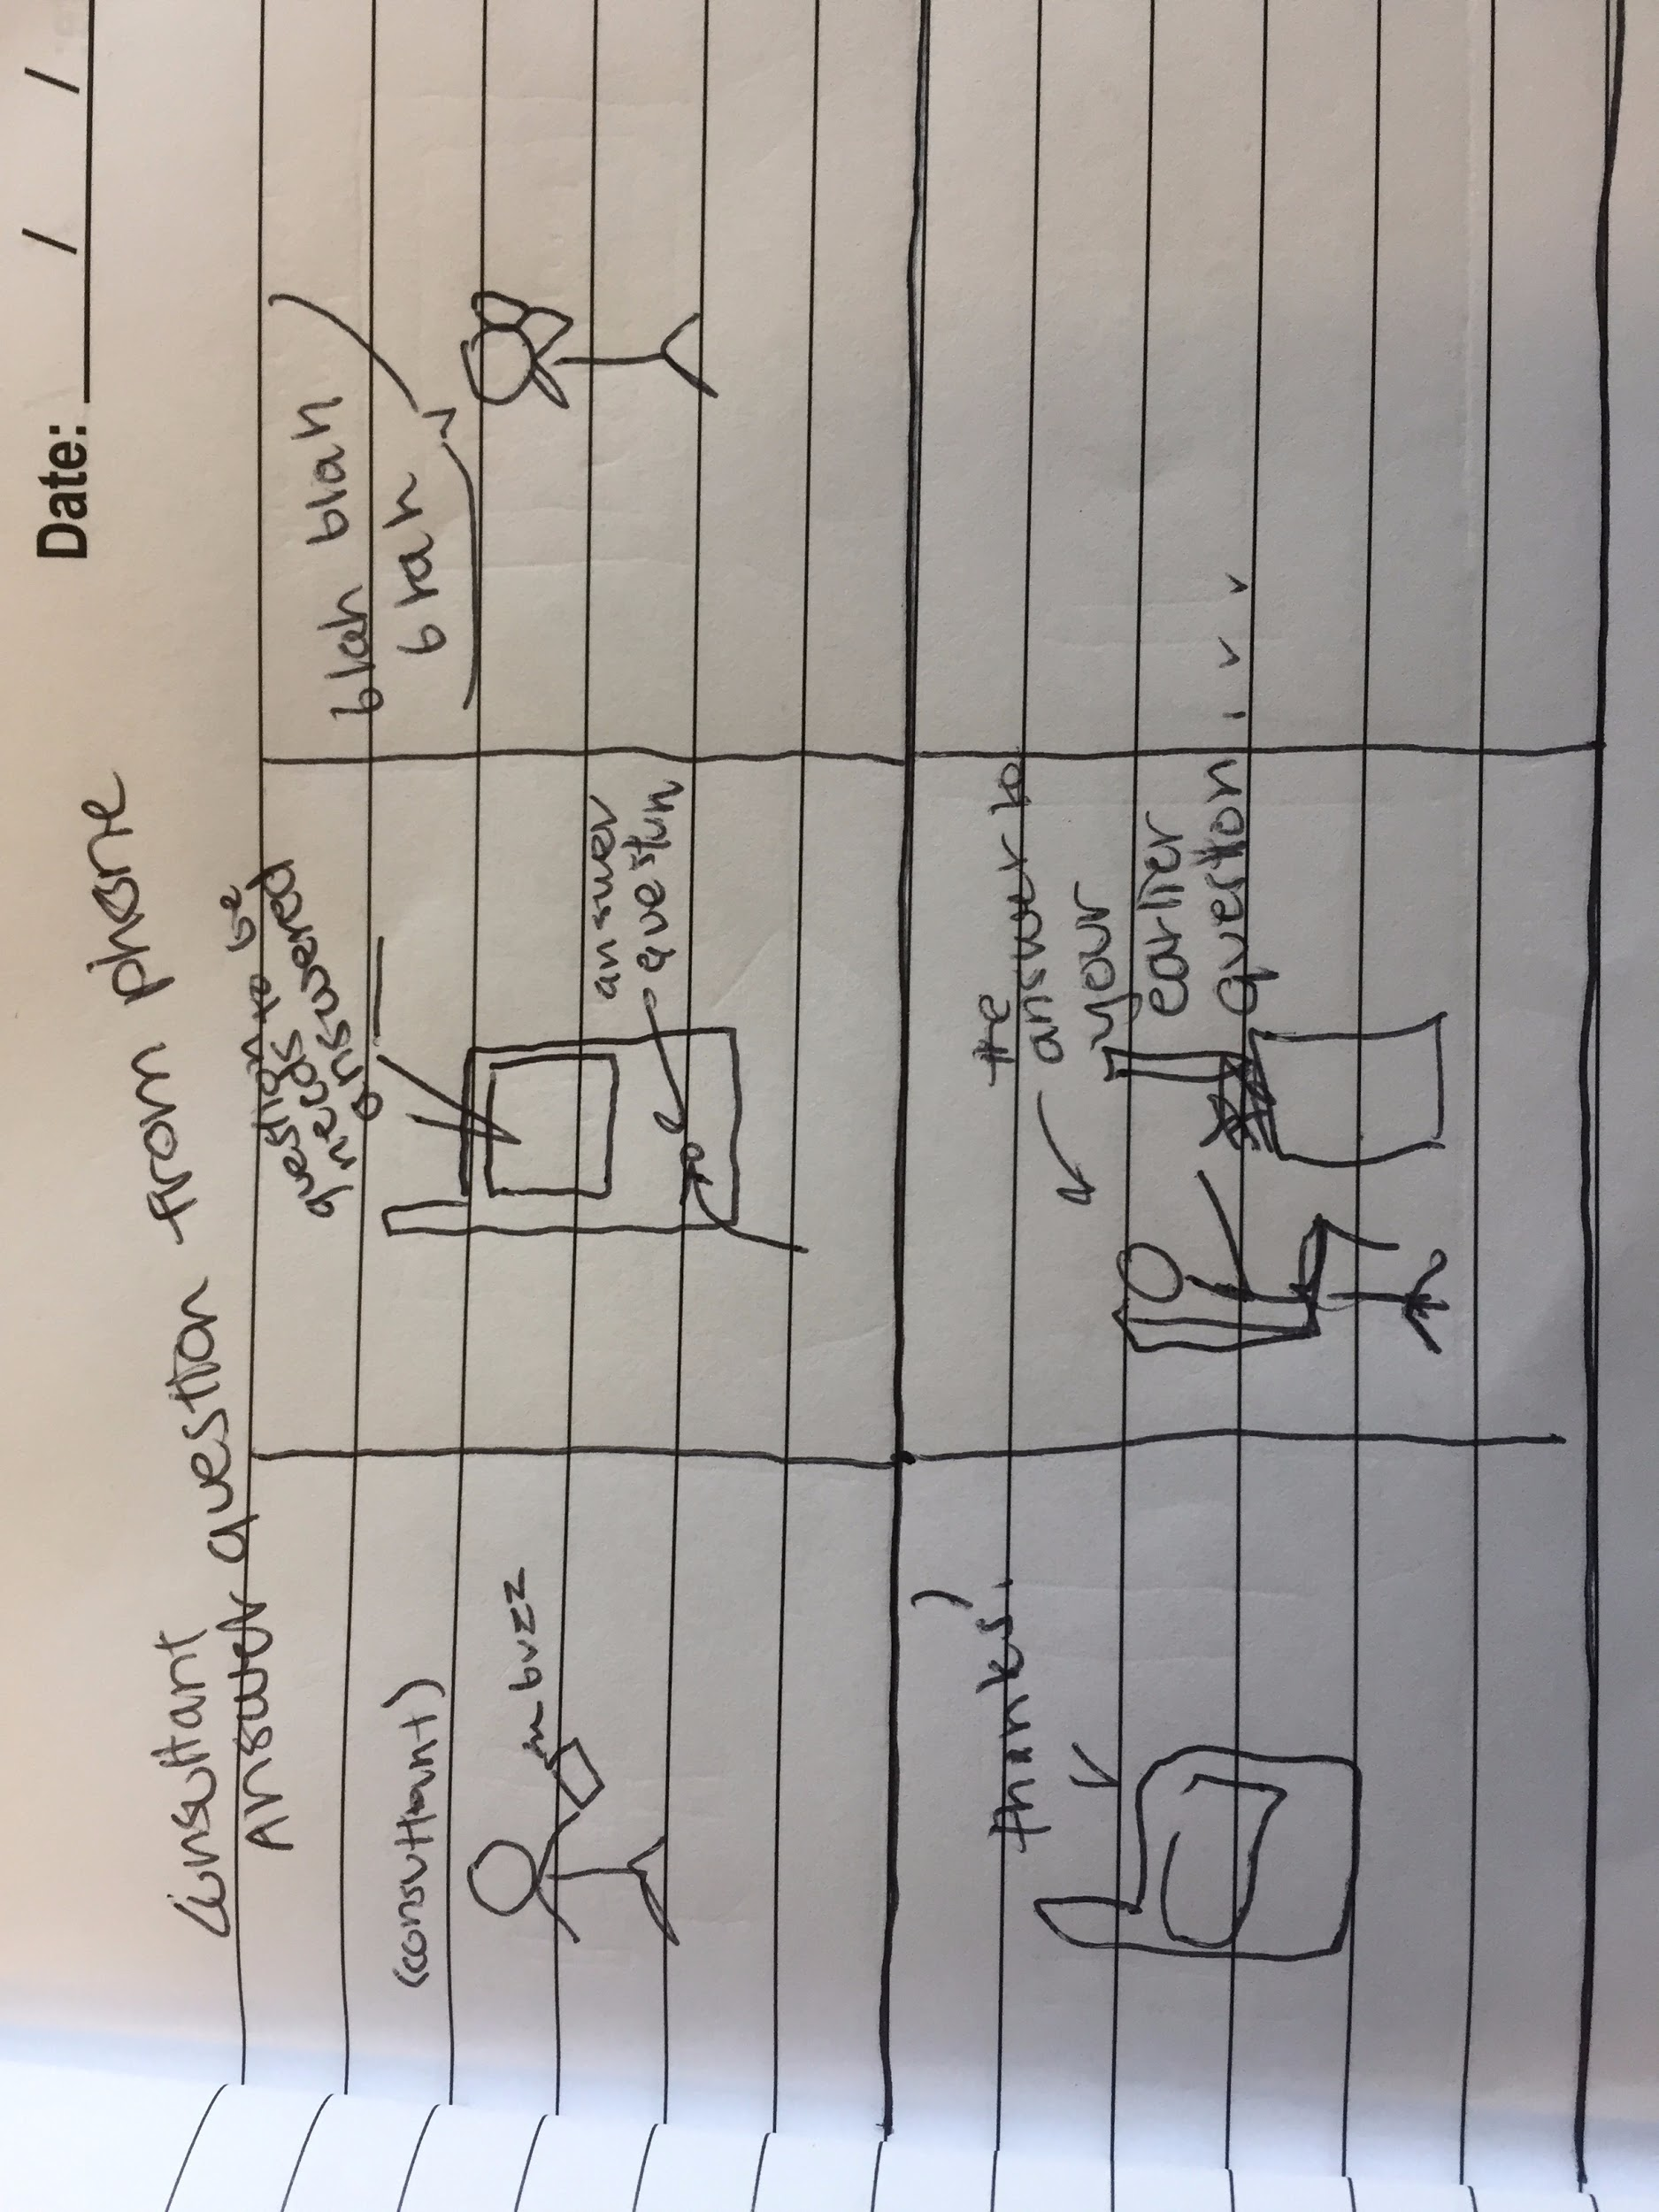 Date: / /
Consultant
Answer question from phone
(consultant)
buzz
question to be
needs
answered
answer
question
blah blah
blah
thanks!
the
answer to
your
earlier
question...